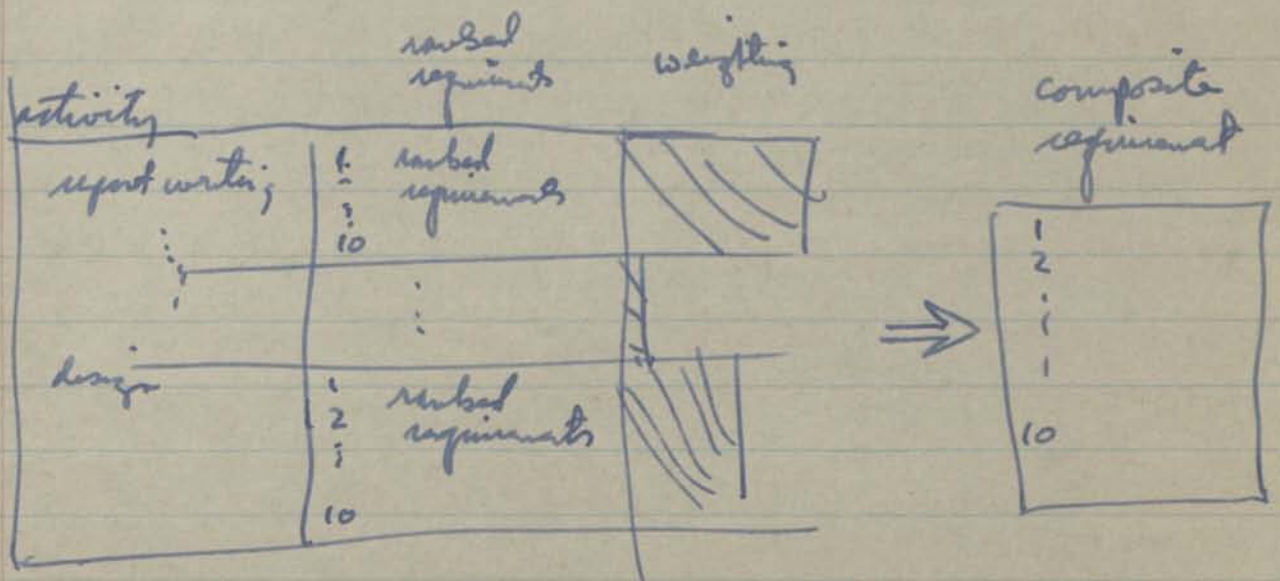 ranked
requirements
weighting
composite
requirement
activity
report writing
1.
ranked
requirements
10
design
1
2
ranked
requirements
10
1
2
10